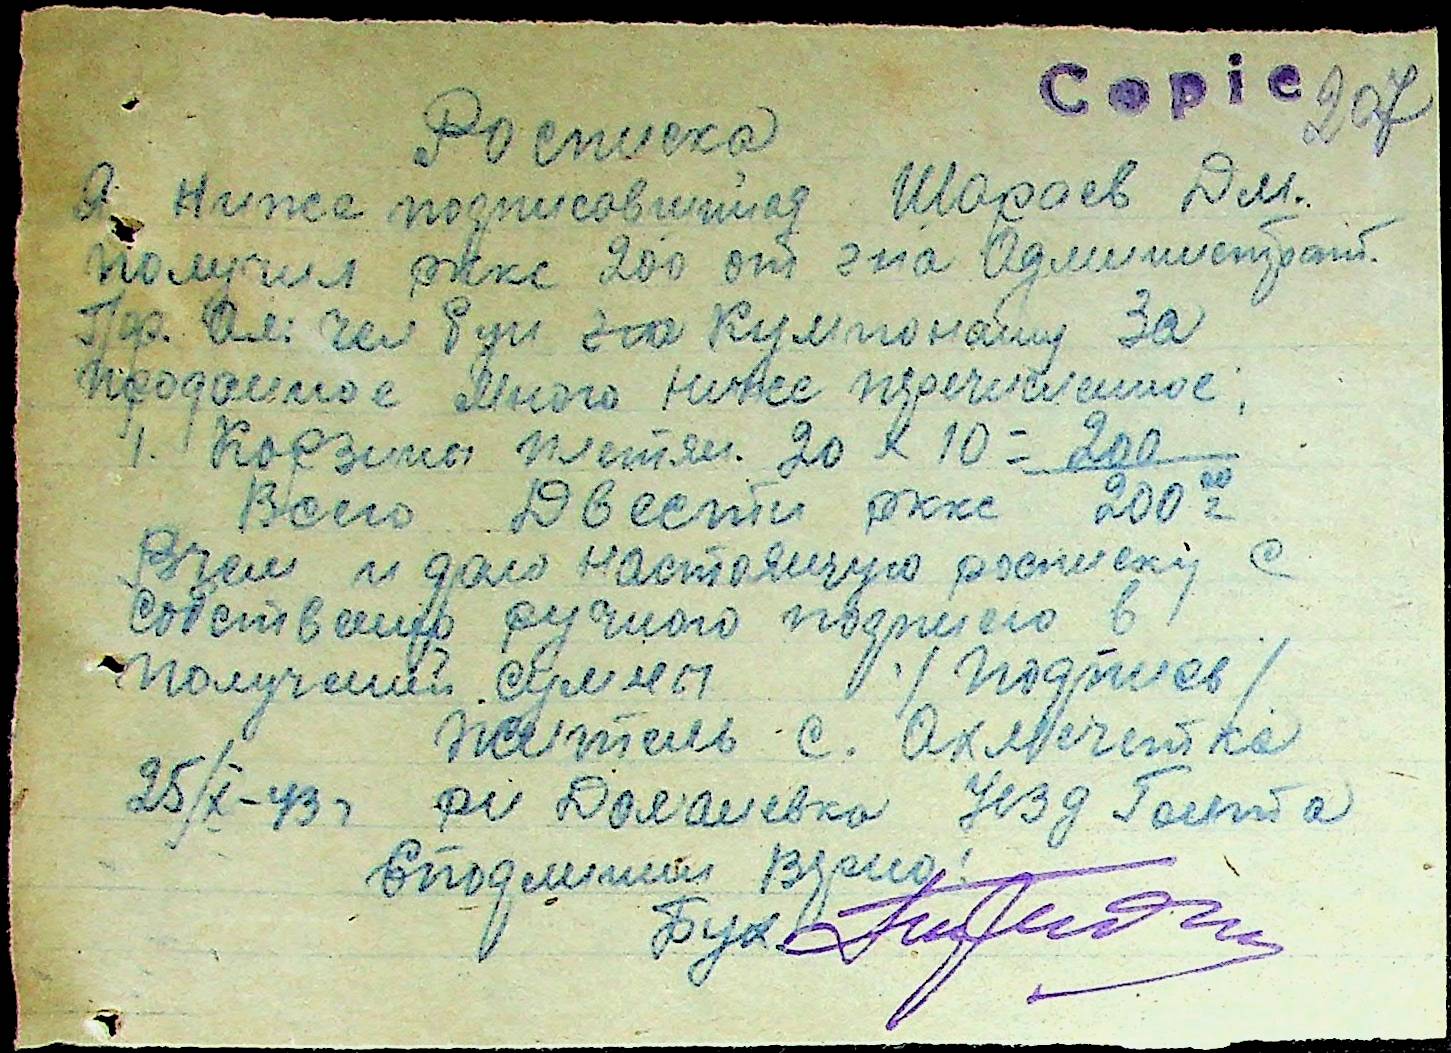 Copie 207
Росписка
Я ниже подписавшийся Шараев Дм.
Получил рккс 200 от г-на Администрат.
Пр. Ал. г-на Кумпонашу За
проданное много ниже перечисленное:
1. Корзины плетян. 20 х 10 = 200
Всего Двести рккс 200 00
В чем и даю настоящую росписку с
собственно ручного подписю в
получений суммы / Подпись /
Житель с. Ахмечетка
25/X-43 г рн Доманевка Уезд Голта
С подлиним Верно:
Бух.